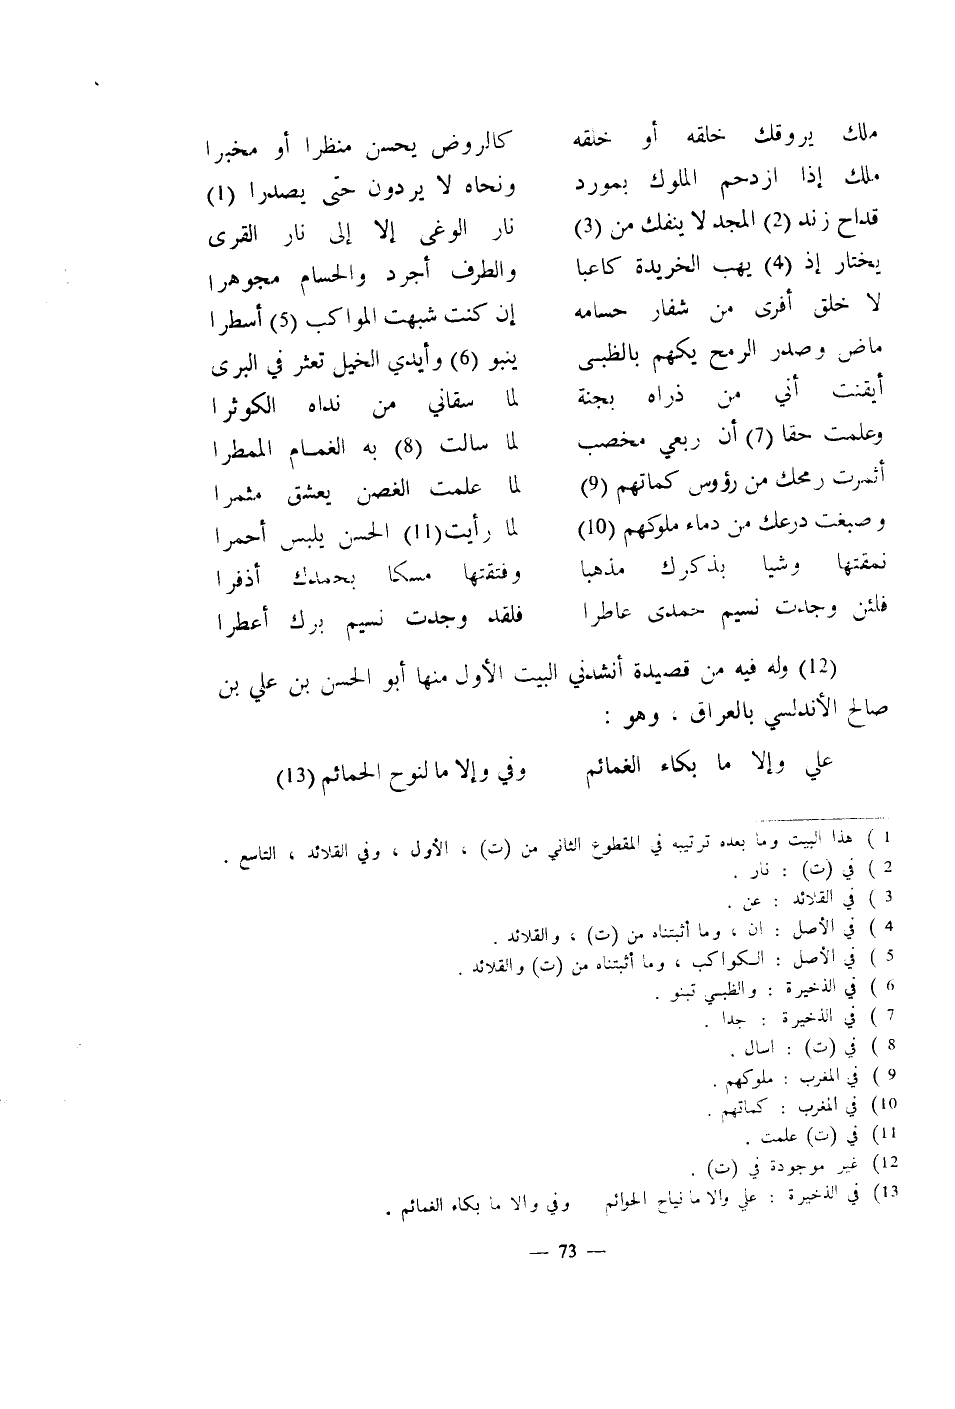 ملك يروقك خلقه أو خلقه كالروض يحسن منظرا أو مخبرا
ملك إذا ازدحم الملوك بمورد ونحاه لا يردون حتى يصدرا (1)
قداح زند (2) المجد لا ينفك من (3) نار الوغى إلا إلى نار القرى
يختار إذ (4) يهب الخريدة كاعبا والطرف أجرد والحسام مجوهرا
لا خلق أفرى من شفار حسامه إن كنت شبهت المواكب (5) أسطرا
ماض وصدر الرمح يكهم بالظبى ينبو (6) وأيدي الخيل تعثر في البرى
أيقنت أني من ذراه بجنة لما سقاني من نداه الكوثرا
وعلمت حقا (7) أن ربعي مخصب لما سالت (8) به الغمام الممطرا
أثمرت رمحك من رؤوس كماتهم (9) لما علمت الغصن يعشق مثمرا
وصبغت درعك من دماء ملوكهم (10) لما رأيت (11) الحسن يلبس أحمرا
نمقتها وشيا بذكرك مذهبا وفتقتها مسكا بحمدك أذفرا
فلئن وجدت نسيم حمدى عاطرا فلقد وجدت نسيم برك أعطرا
(12) وله فيه من قصيدة أنشدني البيت الأول منها أبو الحسن بن علي بن
صالح الأندلسي بالعراق ، وهو :
علي وإلا ما بكاء الغمائم وفي وإلا ما لنوح الحمائم (13)
1 ) هذا البيت وما بعده ترتيبه في المقطوع الثاني من (ت) ، الأول ، وفي القلائد ، التاسع .
2 ) في (ت) : نار .
3 ) في القلائد : عن .
4 ) في الأصل : ان ، وما أثبتناه من (ت) ، والقلائد .
5 ) في الأصل : الكواكب ، وما أثبتناه من (ت) والقلائد .
6 ) في الذخيرة : والظبي تبنو .
7 ) في الذخيرة : جدا .
8 ) في (ت) : اسال .
9 ) في المغرب : ملوكهم .
10) في المغرب : كماتهم .
11) في (ت) علمت .
12) غير موجودة في (ت) .
13) في الذخيرة : علي والا ما نياح الحوائم وفي والا ما بكاء الغمائم .
— 73 —